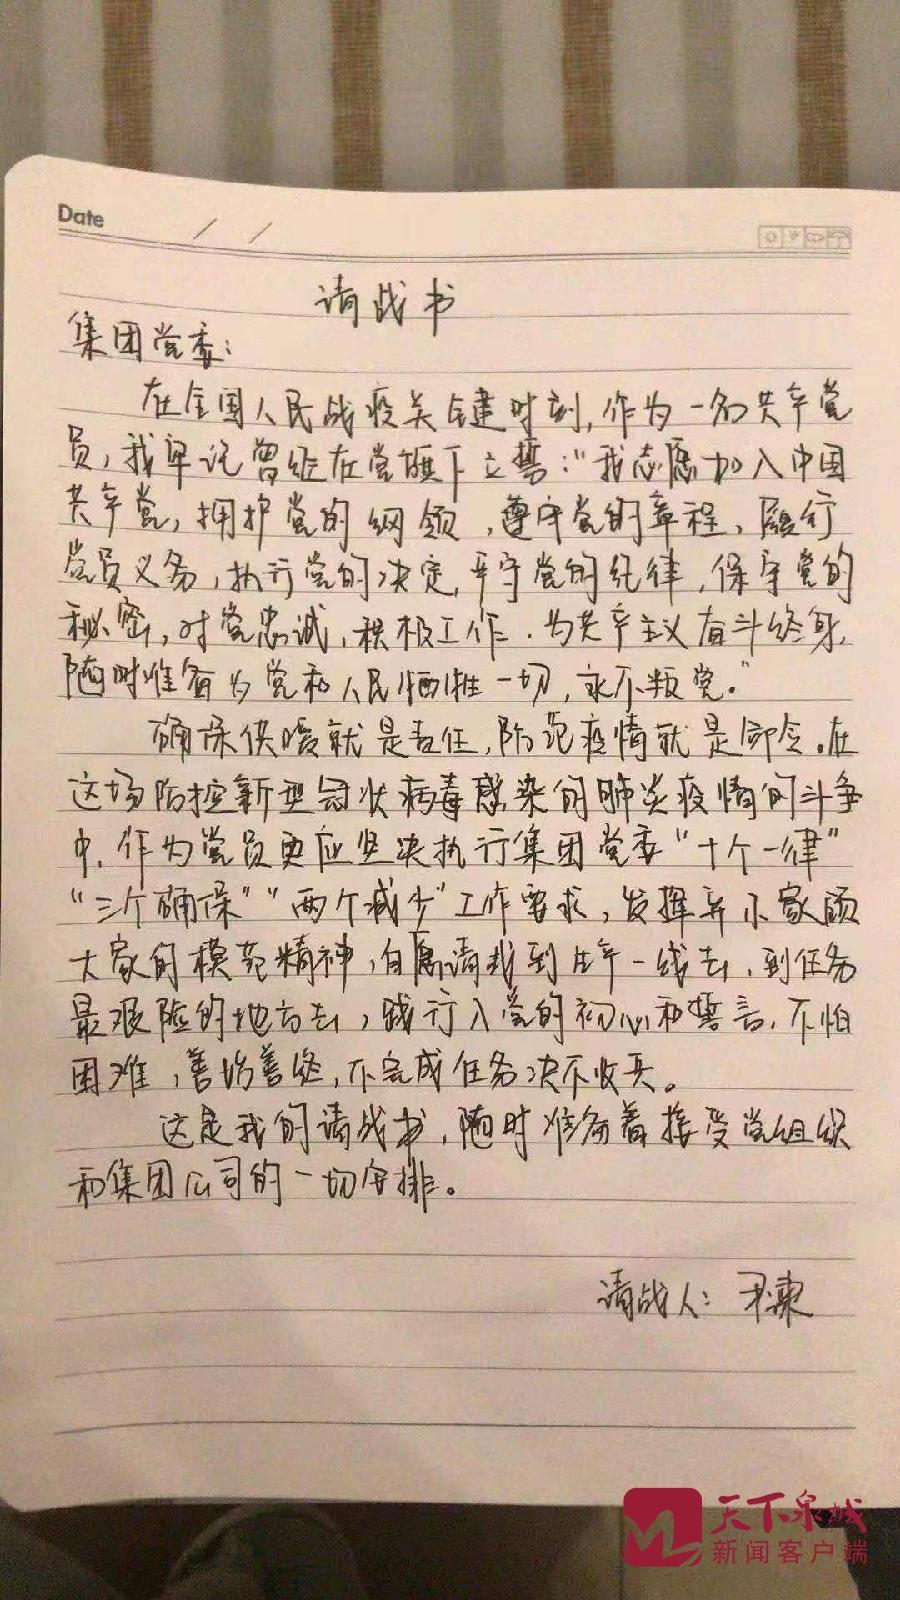 Date / /
请战书
集团党委：
在全国人民战疫关键时刻，作为一名共产党
员，我牢记曾经在党旗下立誓：“我志愿加入中国
共产党，拥护党的纲领，遵守党的章程，履行
党员义务，执行党的决定，严守党的纪律，保守党的
秘密，对党忠诚，积极工作，为共产主义奋斗终身，
随时准备为党和人民牺牲一切，永不叛党。”
确保供暖就是责任，防范疫情就是命令。在
这场防控新型冠状病毒感染的肺炎疫情的斗争
中，作为党员更应坚决执行集团党委“十个一律”
“三个确保”“两个减少”工作要求，发挥弃小家顾
大家的模范精神，自愿请战到生产一线去，到任务
最艰险的地方去，践行入党的初心和誓言，不怕
困难，善始善终，不完成任务决不收兵。
这是我的请战书，随时准备着接受党组织
和集团公司的一切安排。
请战人：尹
天下泉城
新闻客户端